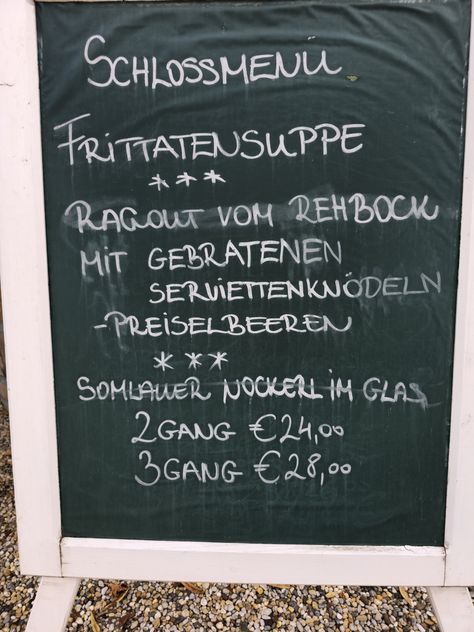 SCHLOSSMENÜ
FRITTATENSUPPE
***
RAGOUT VOM REHBOCK
MIT GEBRATENEN
SERVIETTENKNÖDELN
-PREISELBEEREN
***
SOMLAUER NOCKERL IM GLAS
2GANG €24,00
3GANG €28,00